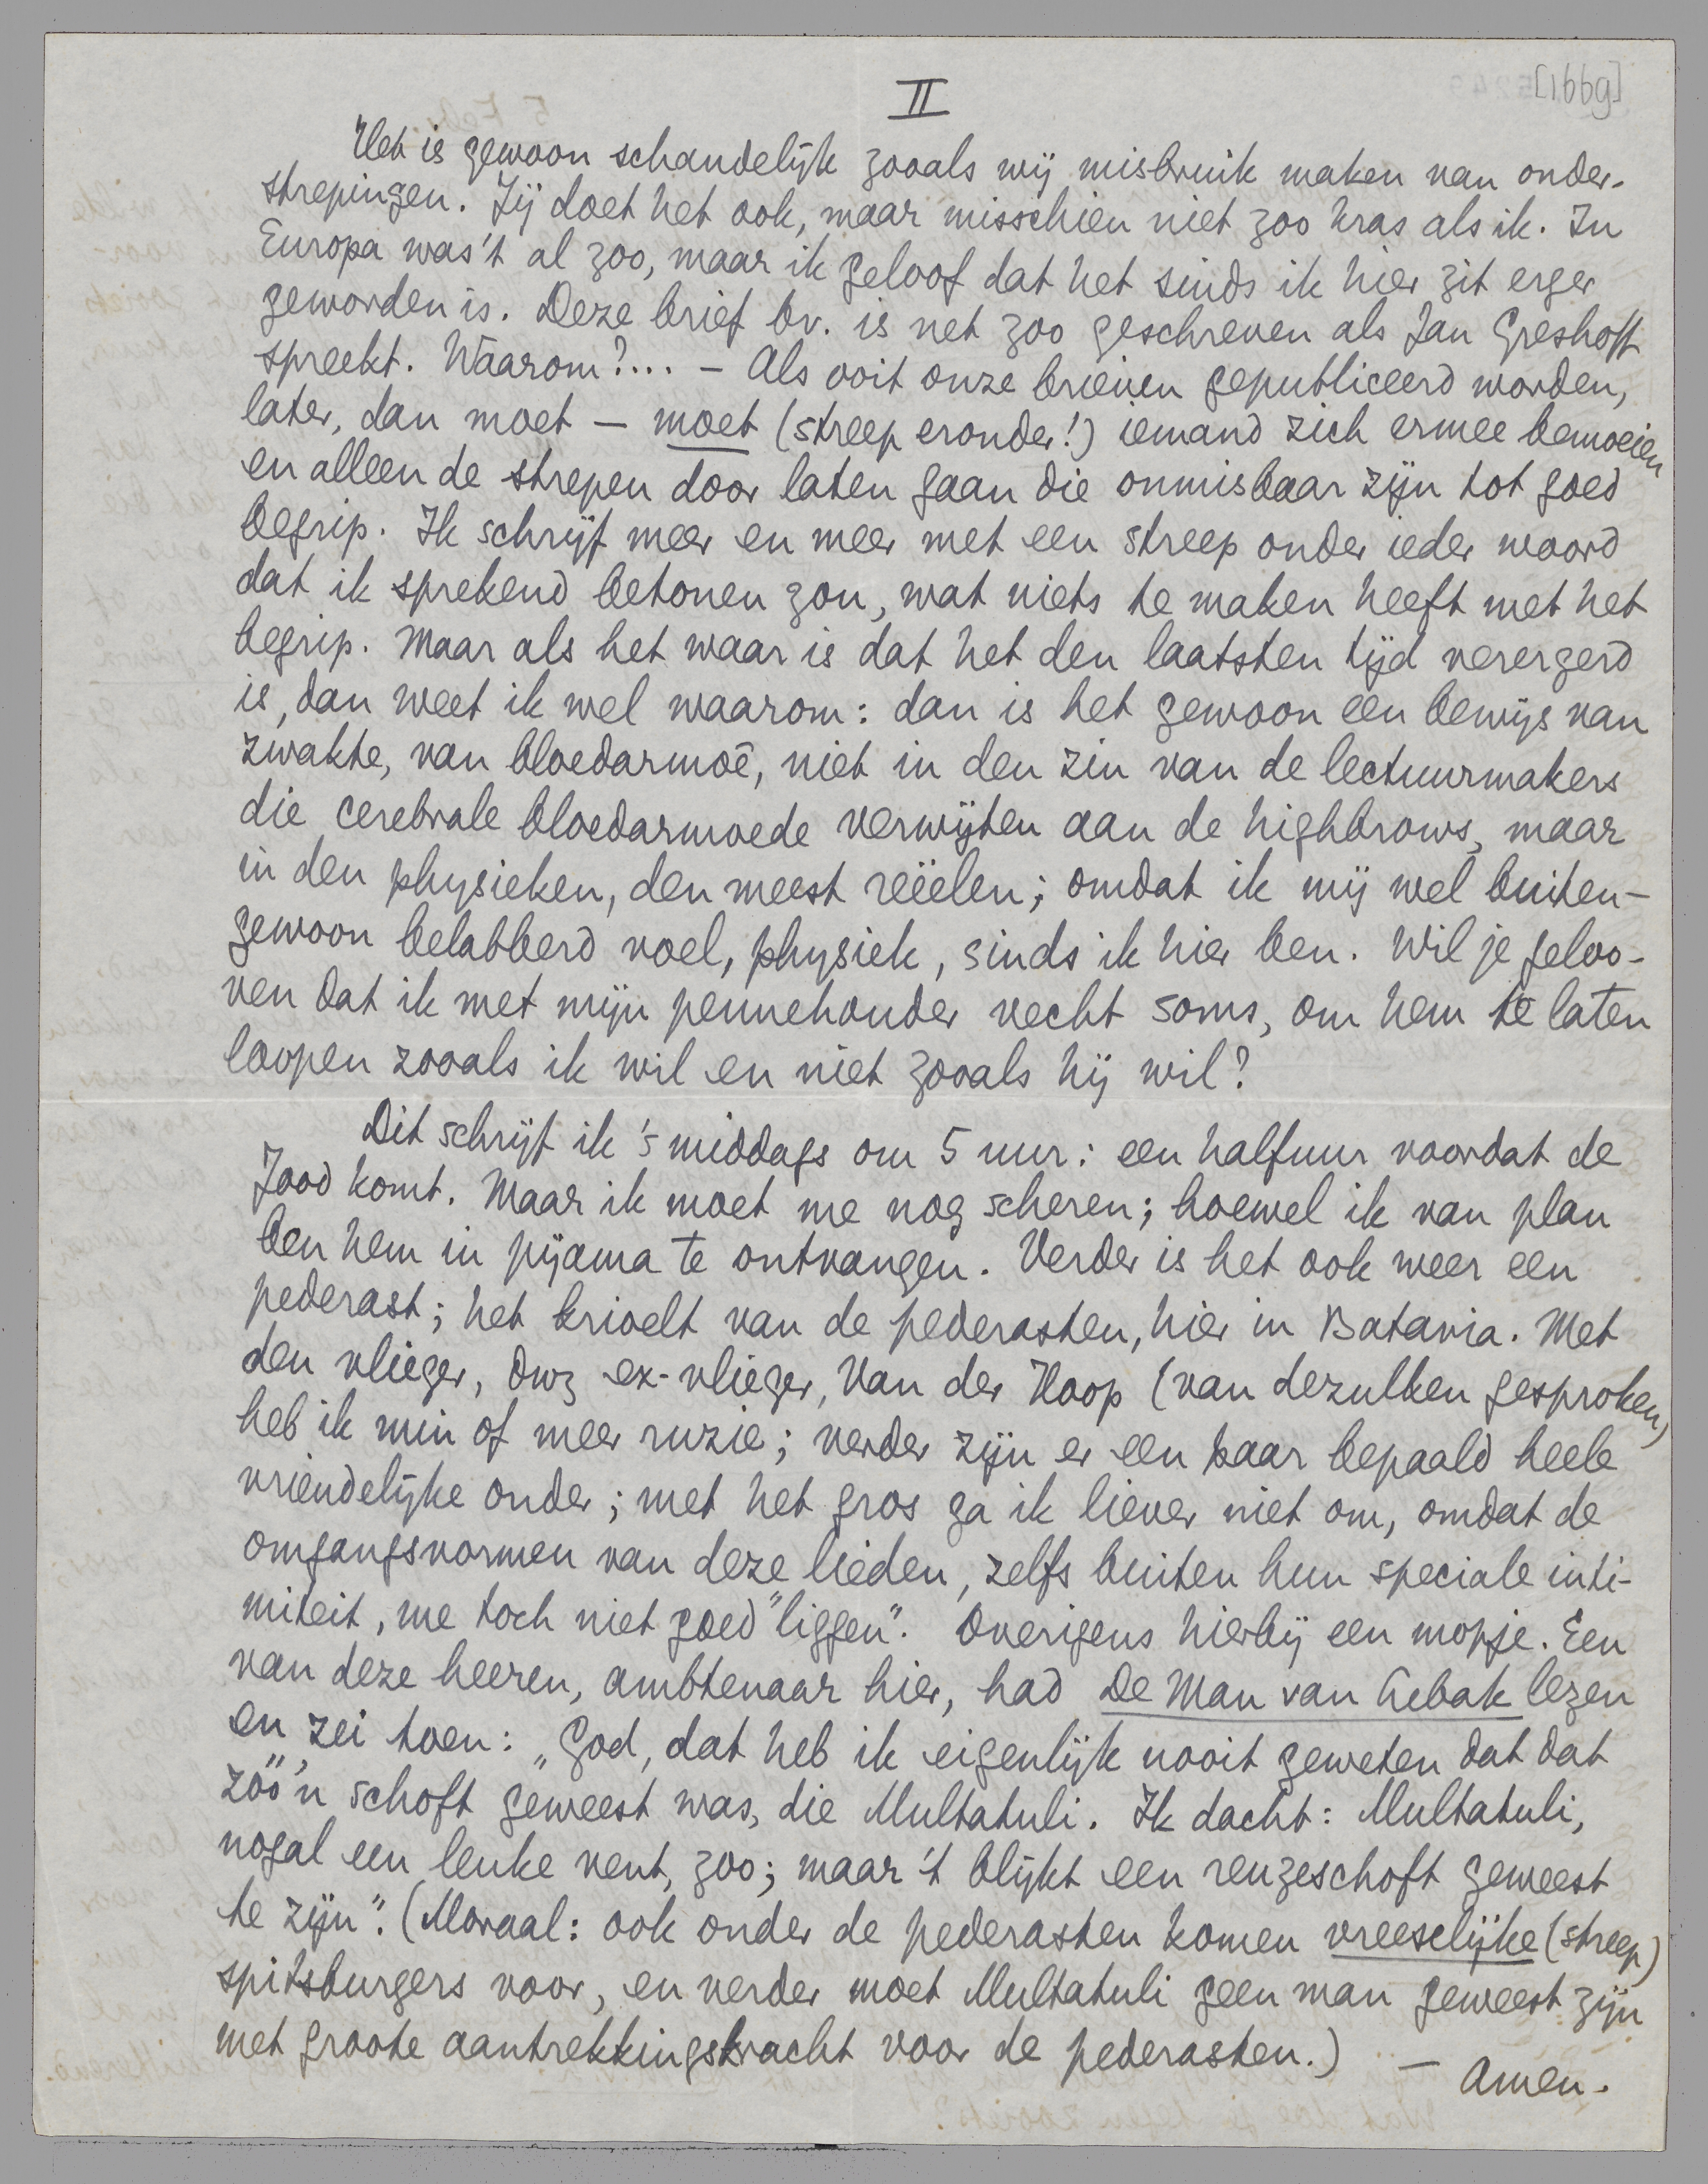 [1669]
II
Het is gewoon schandelijk zooals wij misbruik maken van onder-
strepingen. Jij doet het ook, maar misschien niet zoo kras als ik. In
Europa was 't al zoo, maar ik geloof dat het sinds ik hier zit erger
geworden is. Deze brief bv. is net zoo geschreven als Jan Greshoff
spreekt. Waarom?... – Als ooit onze brieven gepubliceerd worden,
later, dan moet – moet (streep eronder!) iemand zich ermee bemoeien
en alleen de strepen door laten gaan die onmisbaar zijn tot goed
begrip. Ik schrijf meer en meer met een streep onder ieder woord
dat ik sprekend betonen zou, wat niets te maken heeft met het
begrip. Maar als het waar is dat het den laatsten tijd verergerd
is, dan weet ik wel waarom: dan is het gewoon een bewijs van
zwakte, van bloedarmoê, niet in den zin van de lectuurmakers
die cerebrale bloedarmoede verwijten aan de highbrows, maar
in den physieken, den meest reëelen; omdat ik mij wel buiten-
gewoon belabberd voel, physiek, sinds ik hier ben. Wil je geloo-
ven dat ik met mijn pennehouder vecht soms, om hem te laten
loopen zooals ik wil en niet zooals hij wil?
Dit schrijf ik 's middags om 5 uur: een halfuur voordat de
Jood komt. Maar ik moet me nog scheren; hoewel ik van plan
ben hem in pyjama te ontvangen. Verder is het ook weer een
pederast; het krioelt van de pederasten, hier in Batavia. Met
den vlieger, dwz ex-vlieger, Van der Hoop (van dezulken gesproken)
heb ik min of meer ruzie; verder zijn er een paar bepaald heele
vriendelijke onder; met het gros ga ik liever niet om, omdat de
omgangsvormen van deze lieden, zelfs buiten hun speciale inti-
miteit, me toch niet goed "liggen". Overigens hierbij een mopje. Een
van deze heeren, ambtenaar hier, had De Man van Lebak lezen
en zei toen: „God, dat heb ik eigenlijk nooit geweten dat dat
zóó'n schoft geweest was, die Multatuli. Ik dacht: Multatuli,
nogal een leuke vent, zoo; maar 't blijkt een reuzeschoft geweest
te zijn". (Moraal: ook onder de pederasten komen vreeselijke (streep)
spitsburgers voor, en verder moet Multatuli geen man geweest zijn
met groote aantrekkingskracht voor de pederasten.)
– Amen.